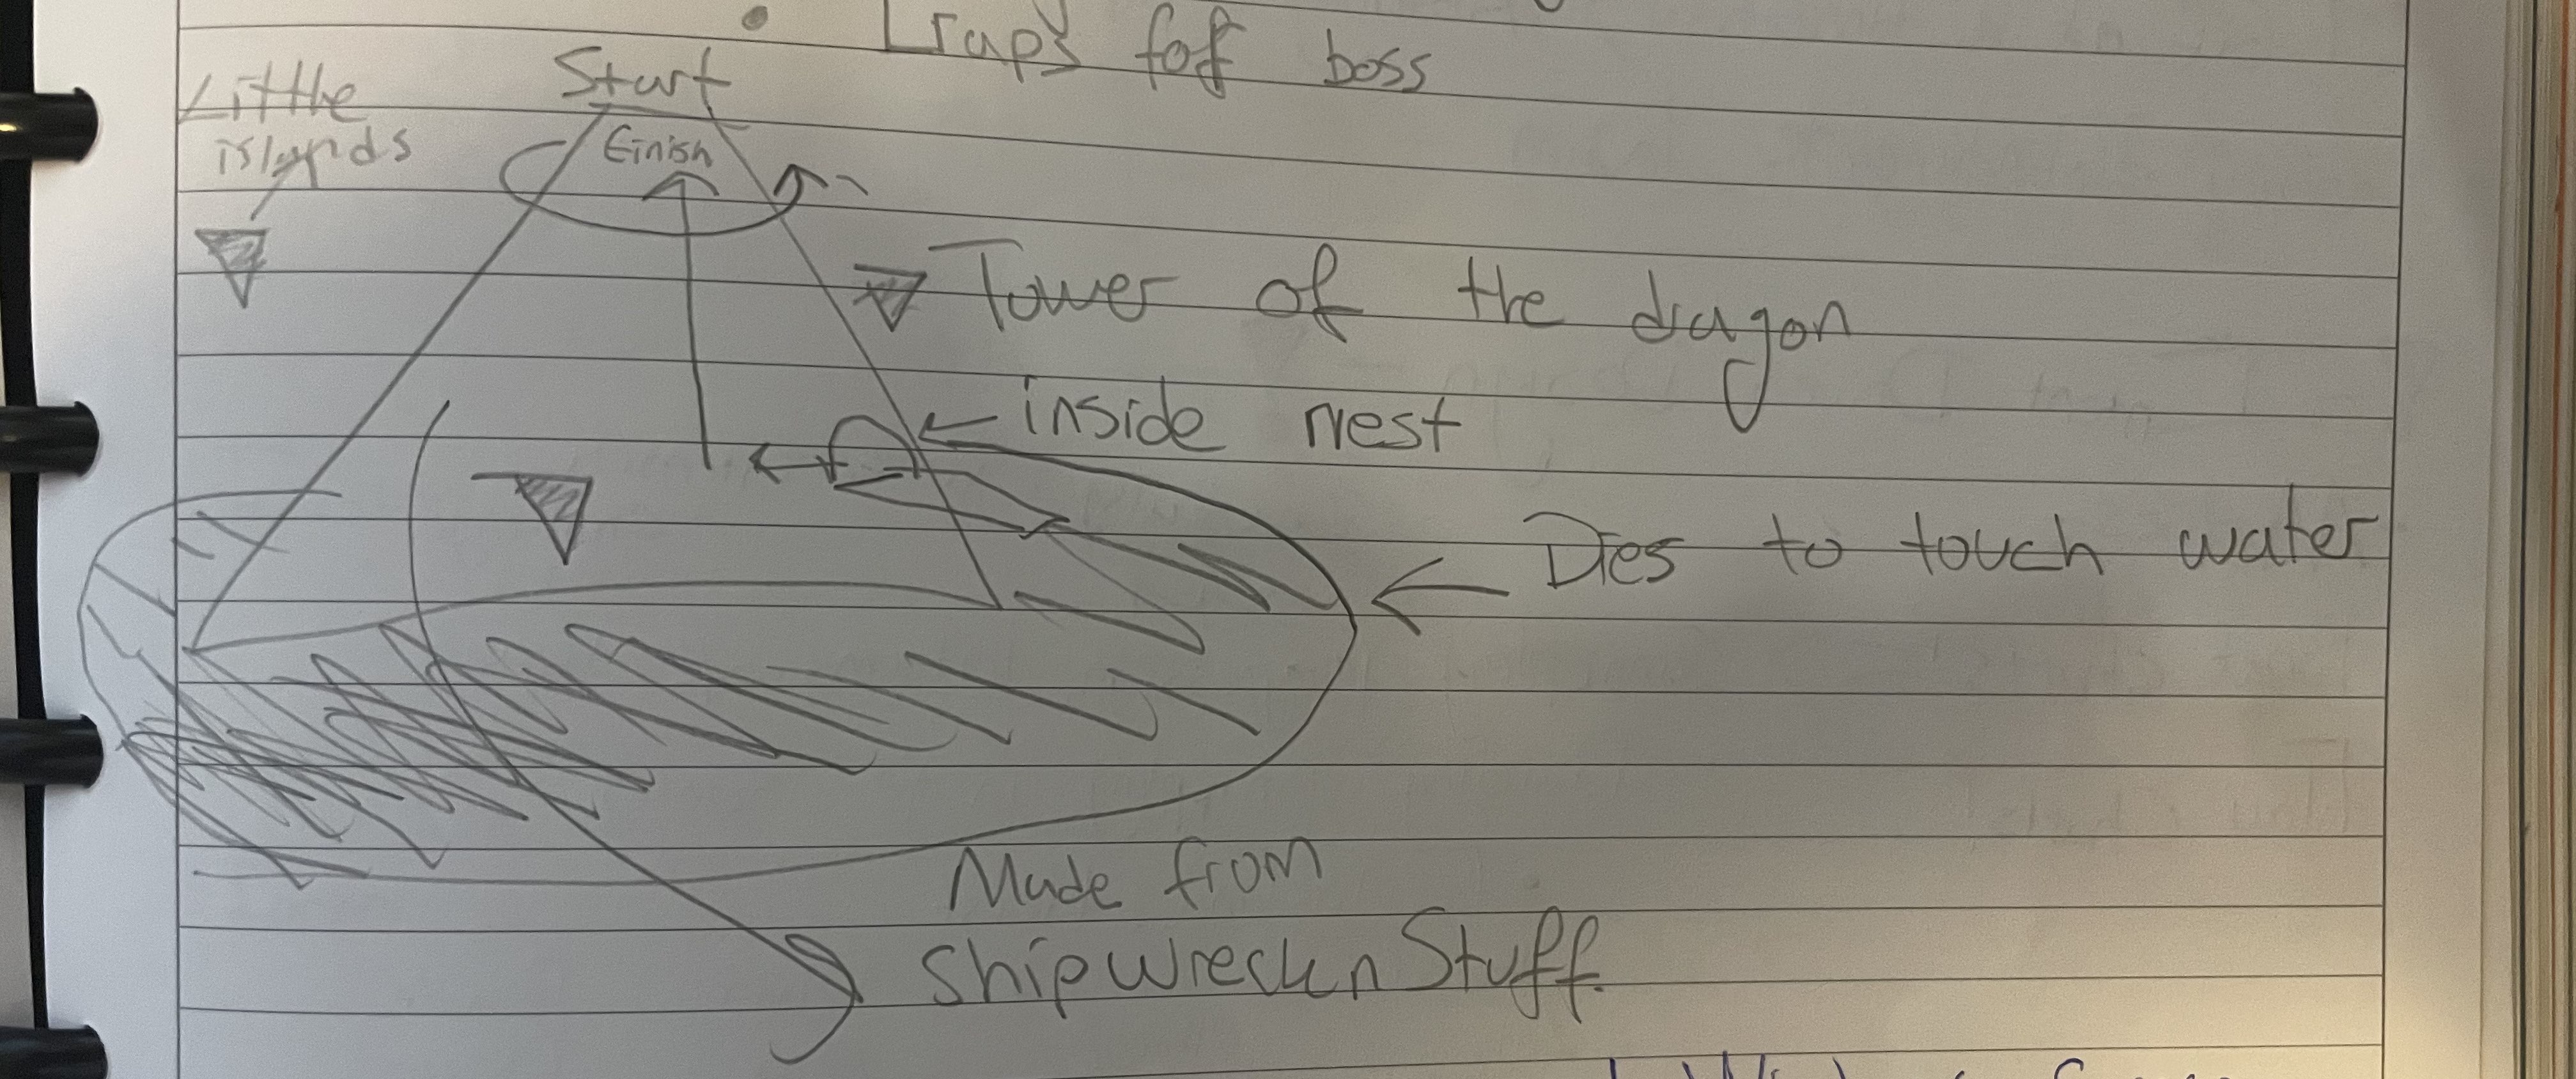 • Traps for boss
Start
Little
islands
Finish
Tower of the dragon
inside nest
Dies to touch water
Made from
shipwreck n Stuff.